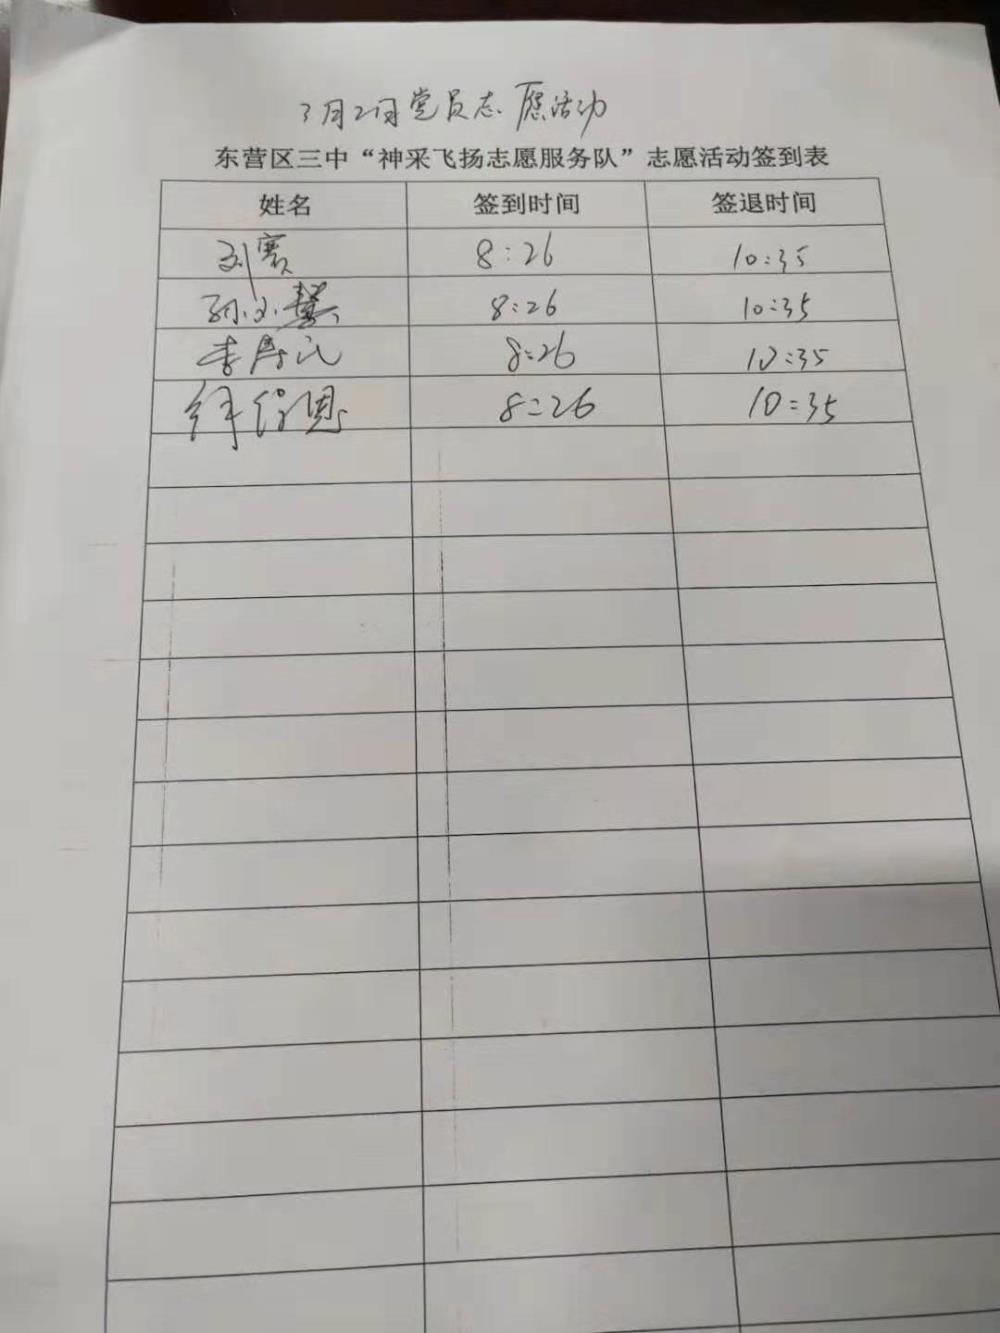 3月2日党员志愿活动
东营区三中“神采飞扬志愿服务队”志愿活动签到表
姓名 签到时间 签退时间
刘赛 8:26 10:35
孙小 8:26 10:35
李寿 8:26 10:35
8:26 10:35